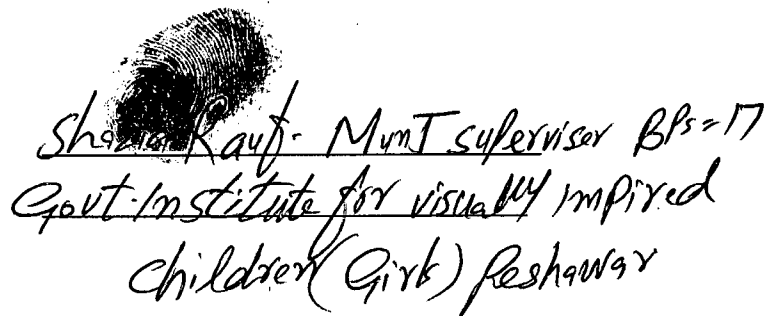 Shazia Rauf- MunT superviser BPs=17
Govt-Institute for visually Impired
Children (Girls) Peshawar